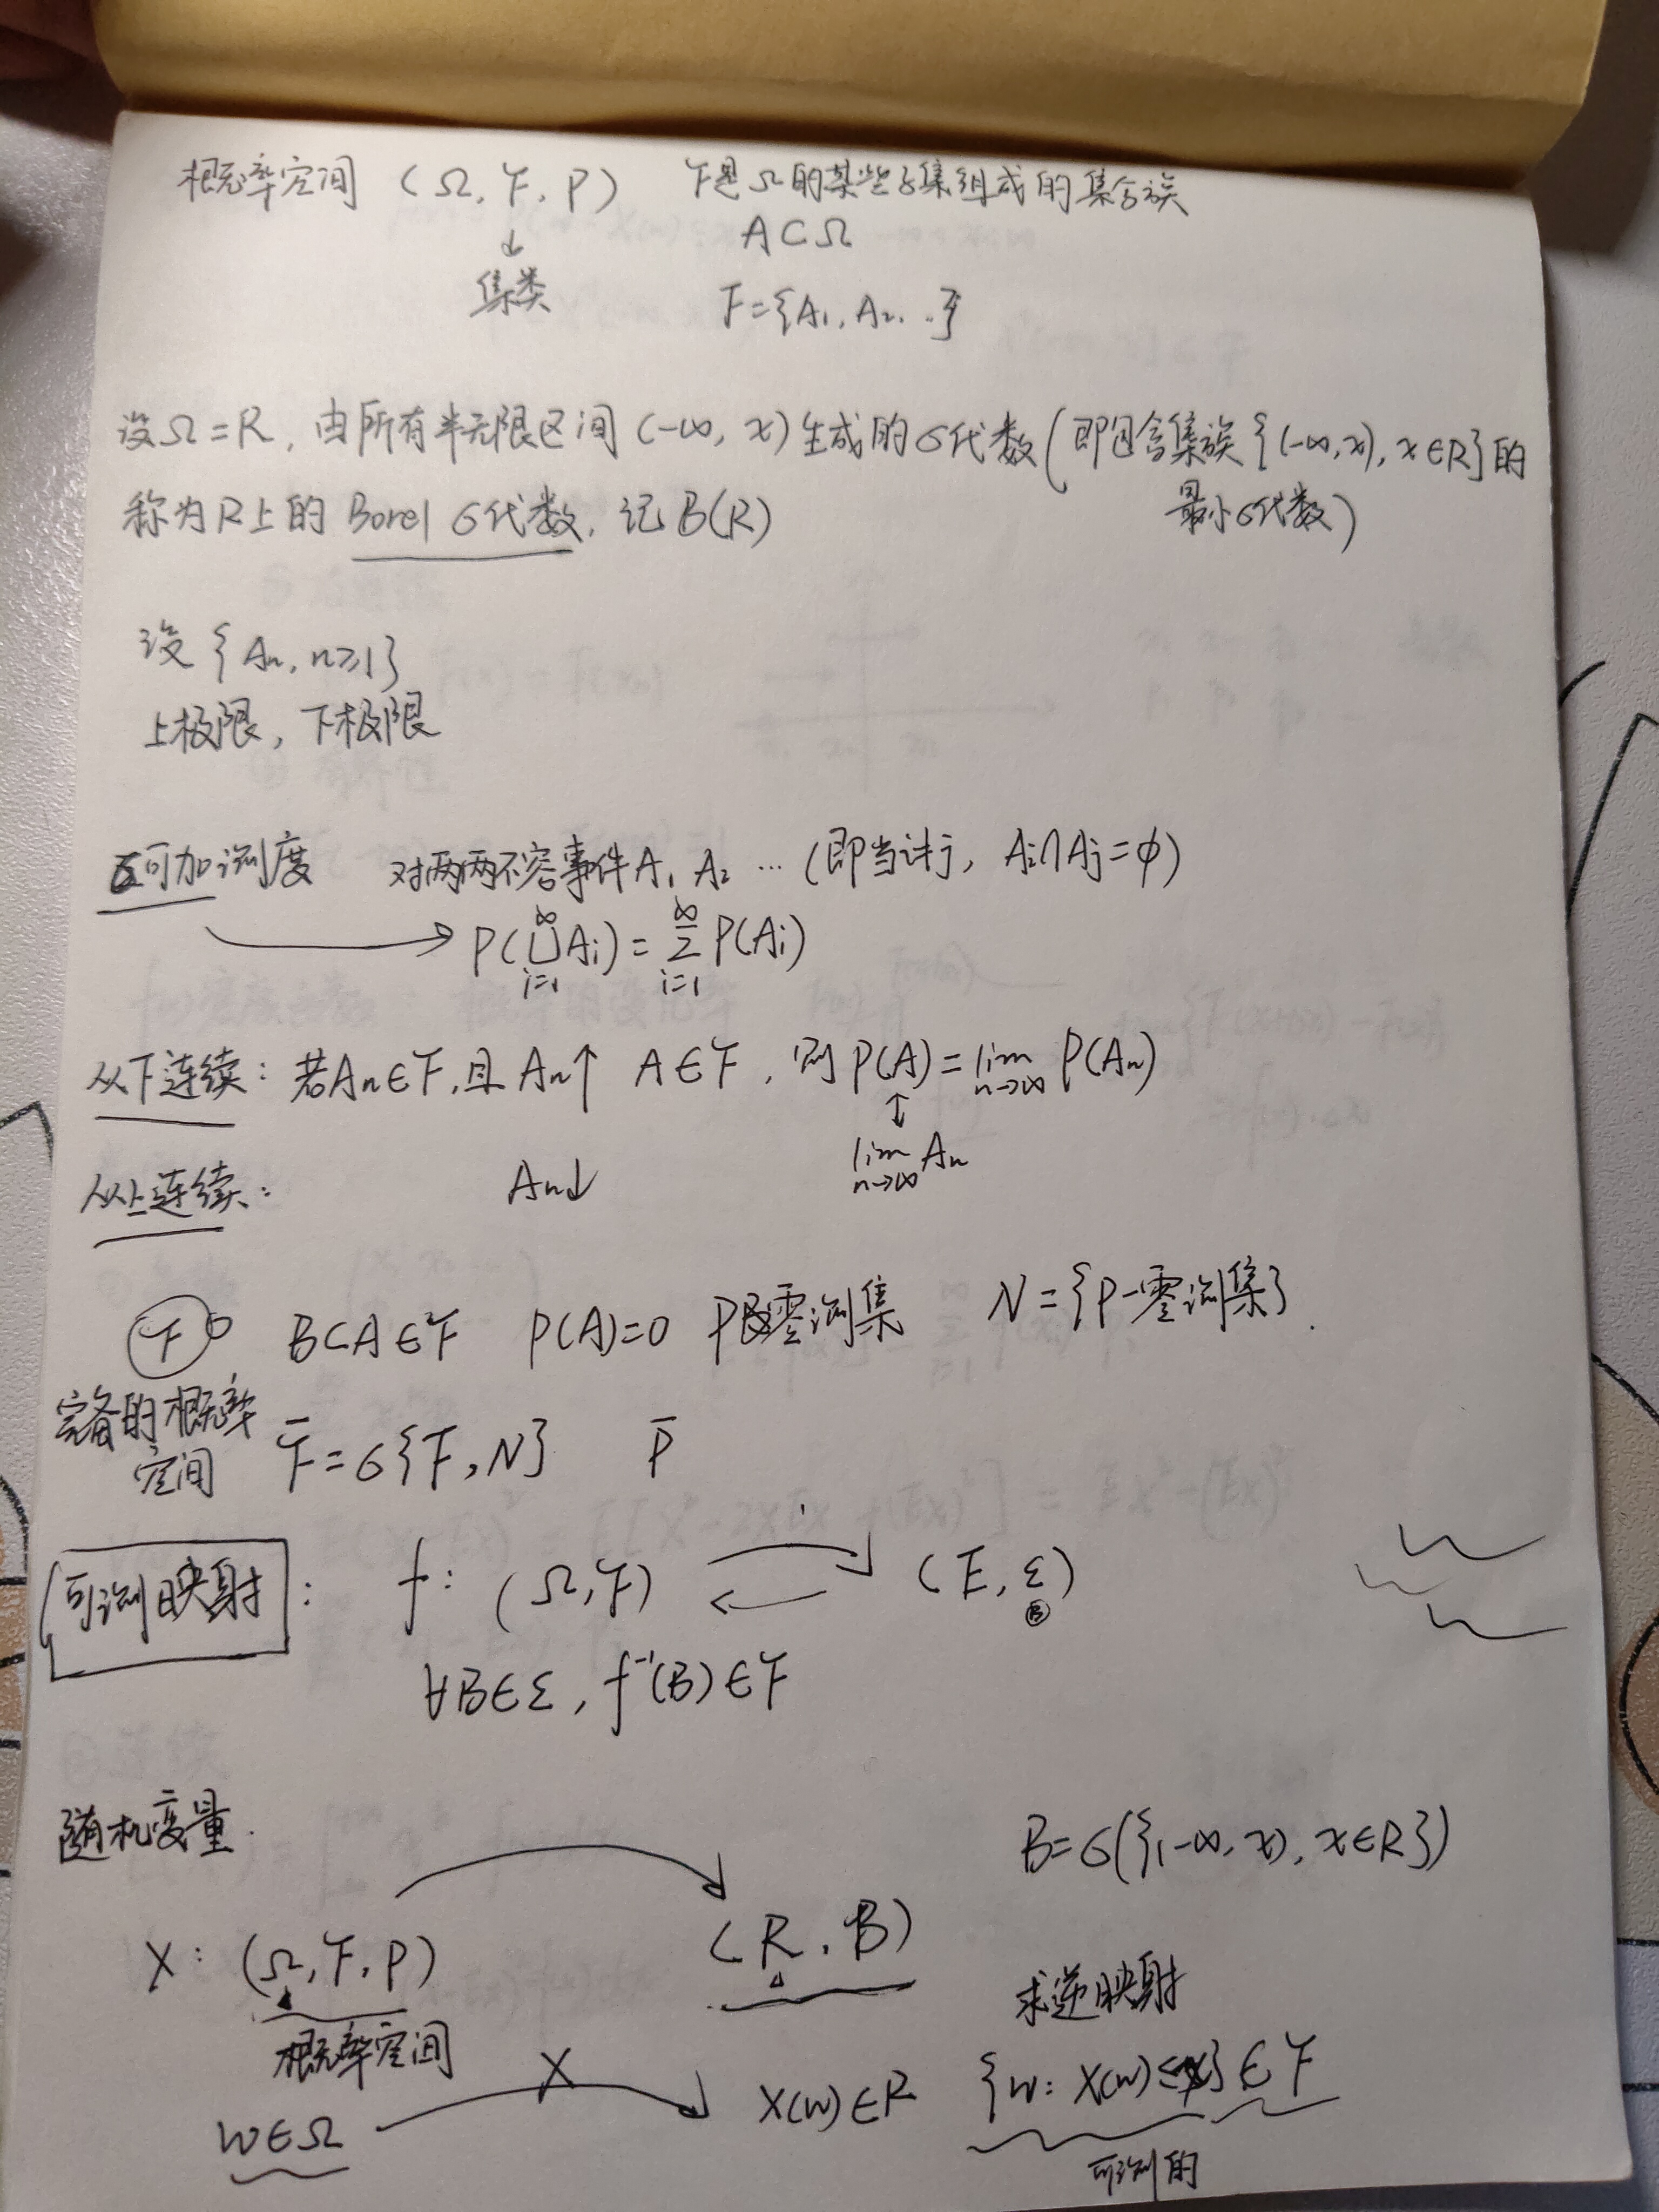 概率空间 (Ω, F, P) F是Ω的某些子集组成的集合族
↓ A⊂Ω
集类 F={A₁, A₂, ..}
设Ω=R, 由所有半无限区间(-∞, x)生成的σ代数(即包含集族{(-∞,x), x∈R}的
称为R上的 Borel σ代数, 记B(R) 最小σ代数)
设 {Aₙ, n≥1}
上极限, 下极限
可加测度 对两两不容事件A₁ A₂ … (即当i≠j, Aᵢ∩Aⱼ=φ)
→ P(⋃_{i=1}^{∞} Aᵢ) = Σ_{i=1}^{∞} P(Aᵢ)
从下连续: 若Aₙ∈F, 且 Aₙ↑ A∈F, 则 P(A) = lim_{n→∞} P(Aₙ)
↕
lim_{n→∞} Aₙ
从上连续: Aₙ↓
F B⊂A∈F P(A)=0 P零测集 N={P-零测集}.
完备的概率
空间 F̄=σ{F, N} P̄
可测映射: f: (Ω, F) ⇄ (E, ε)
B
∀B∈ε, f⁻¹(B)∈F
随机变量. B=σ({(-∞, x), x∈R})
X: (Ω, F, P) → (R, B)
概率空间 求逆映射
w∈Ω X → X(w)∈R {w: X(w)≤x}∈F
可测的